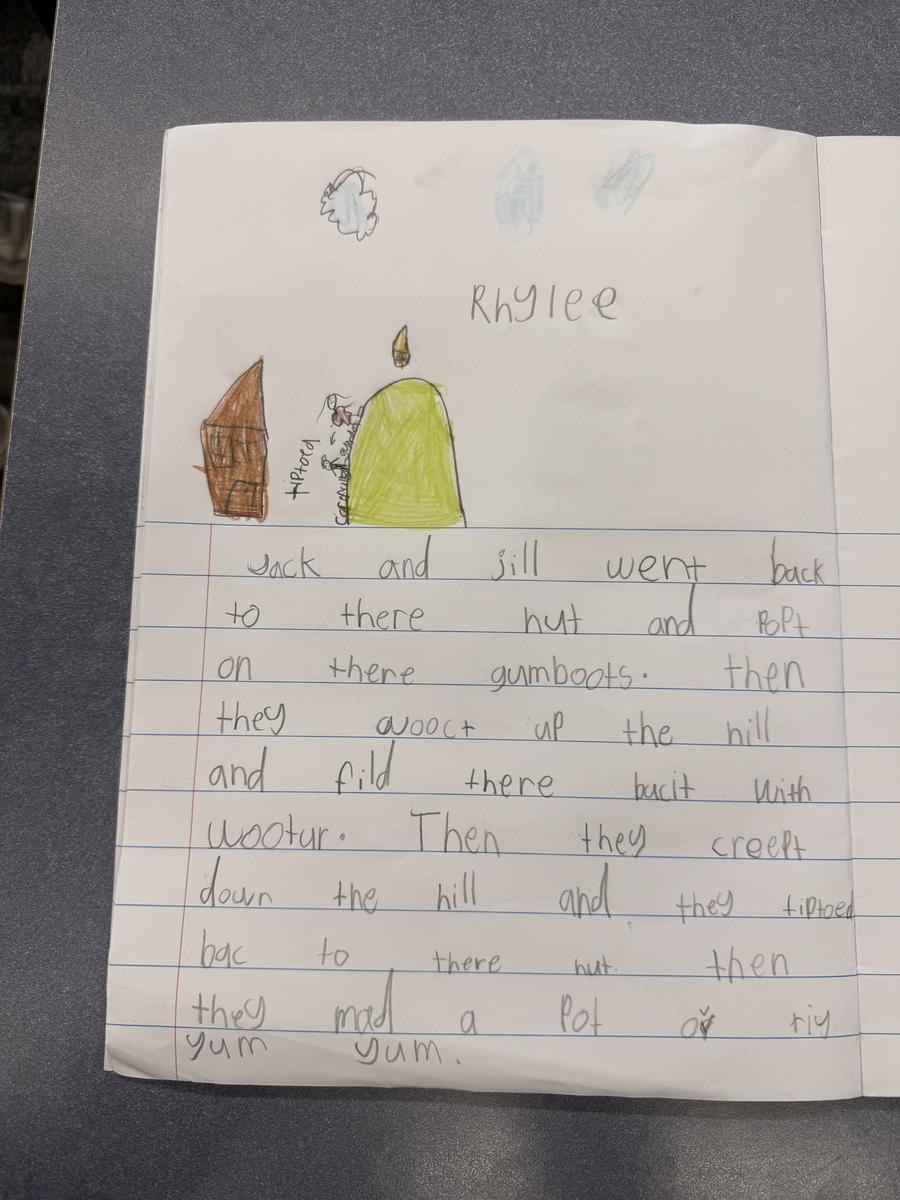 Rhylee
tiptoed
Jack and jill went back
to there hut and popt
on there gumboots. then
they woockt up the hill
and fild there bucit with
wootur. Then they creept
down the hill and they tiptoed
bac to there hut. then
they mad a pot ov riy
yum yum.